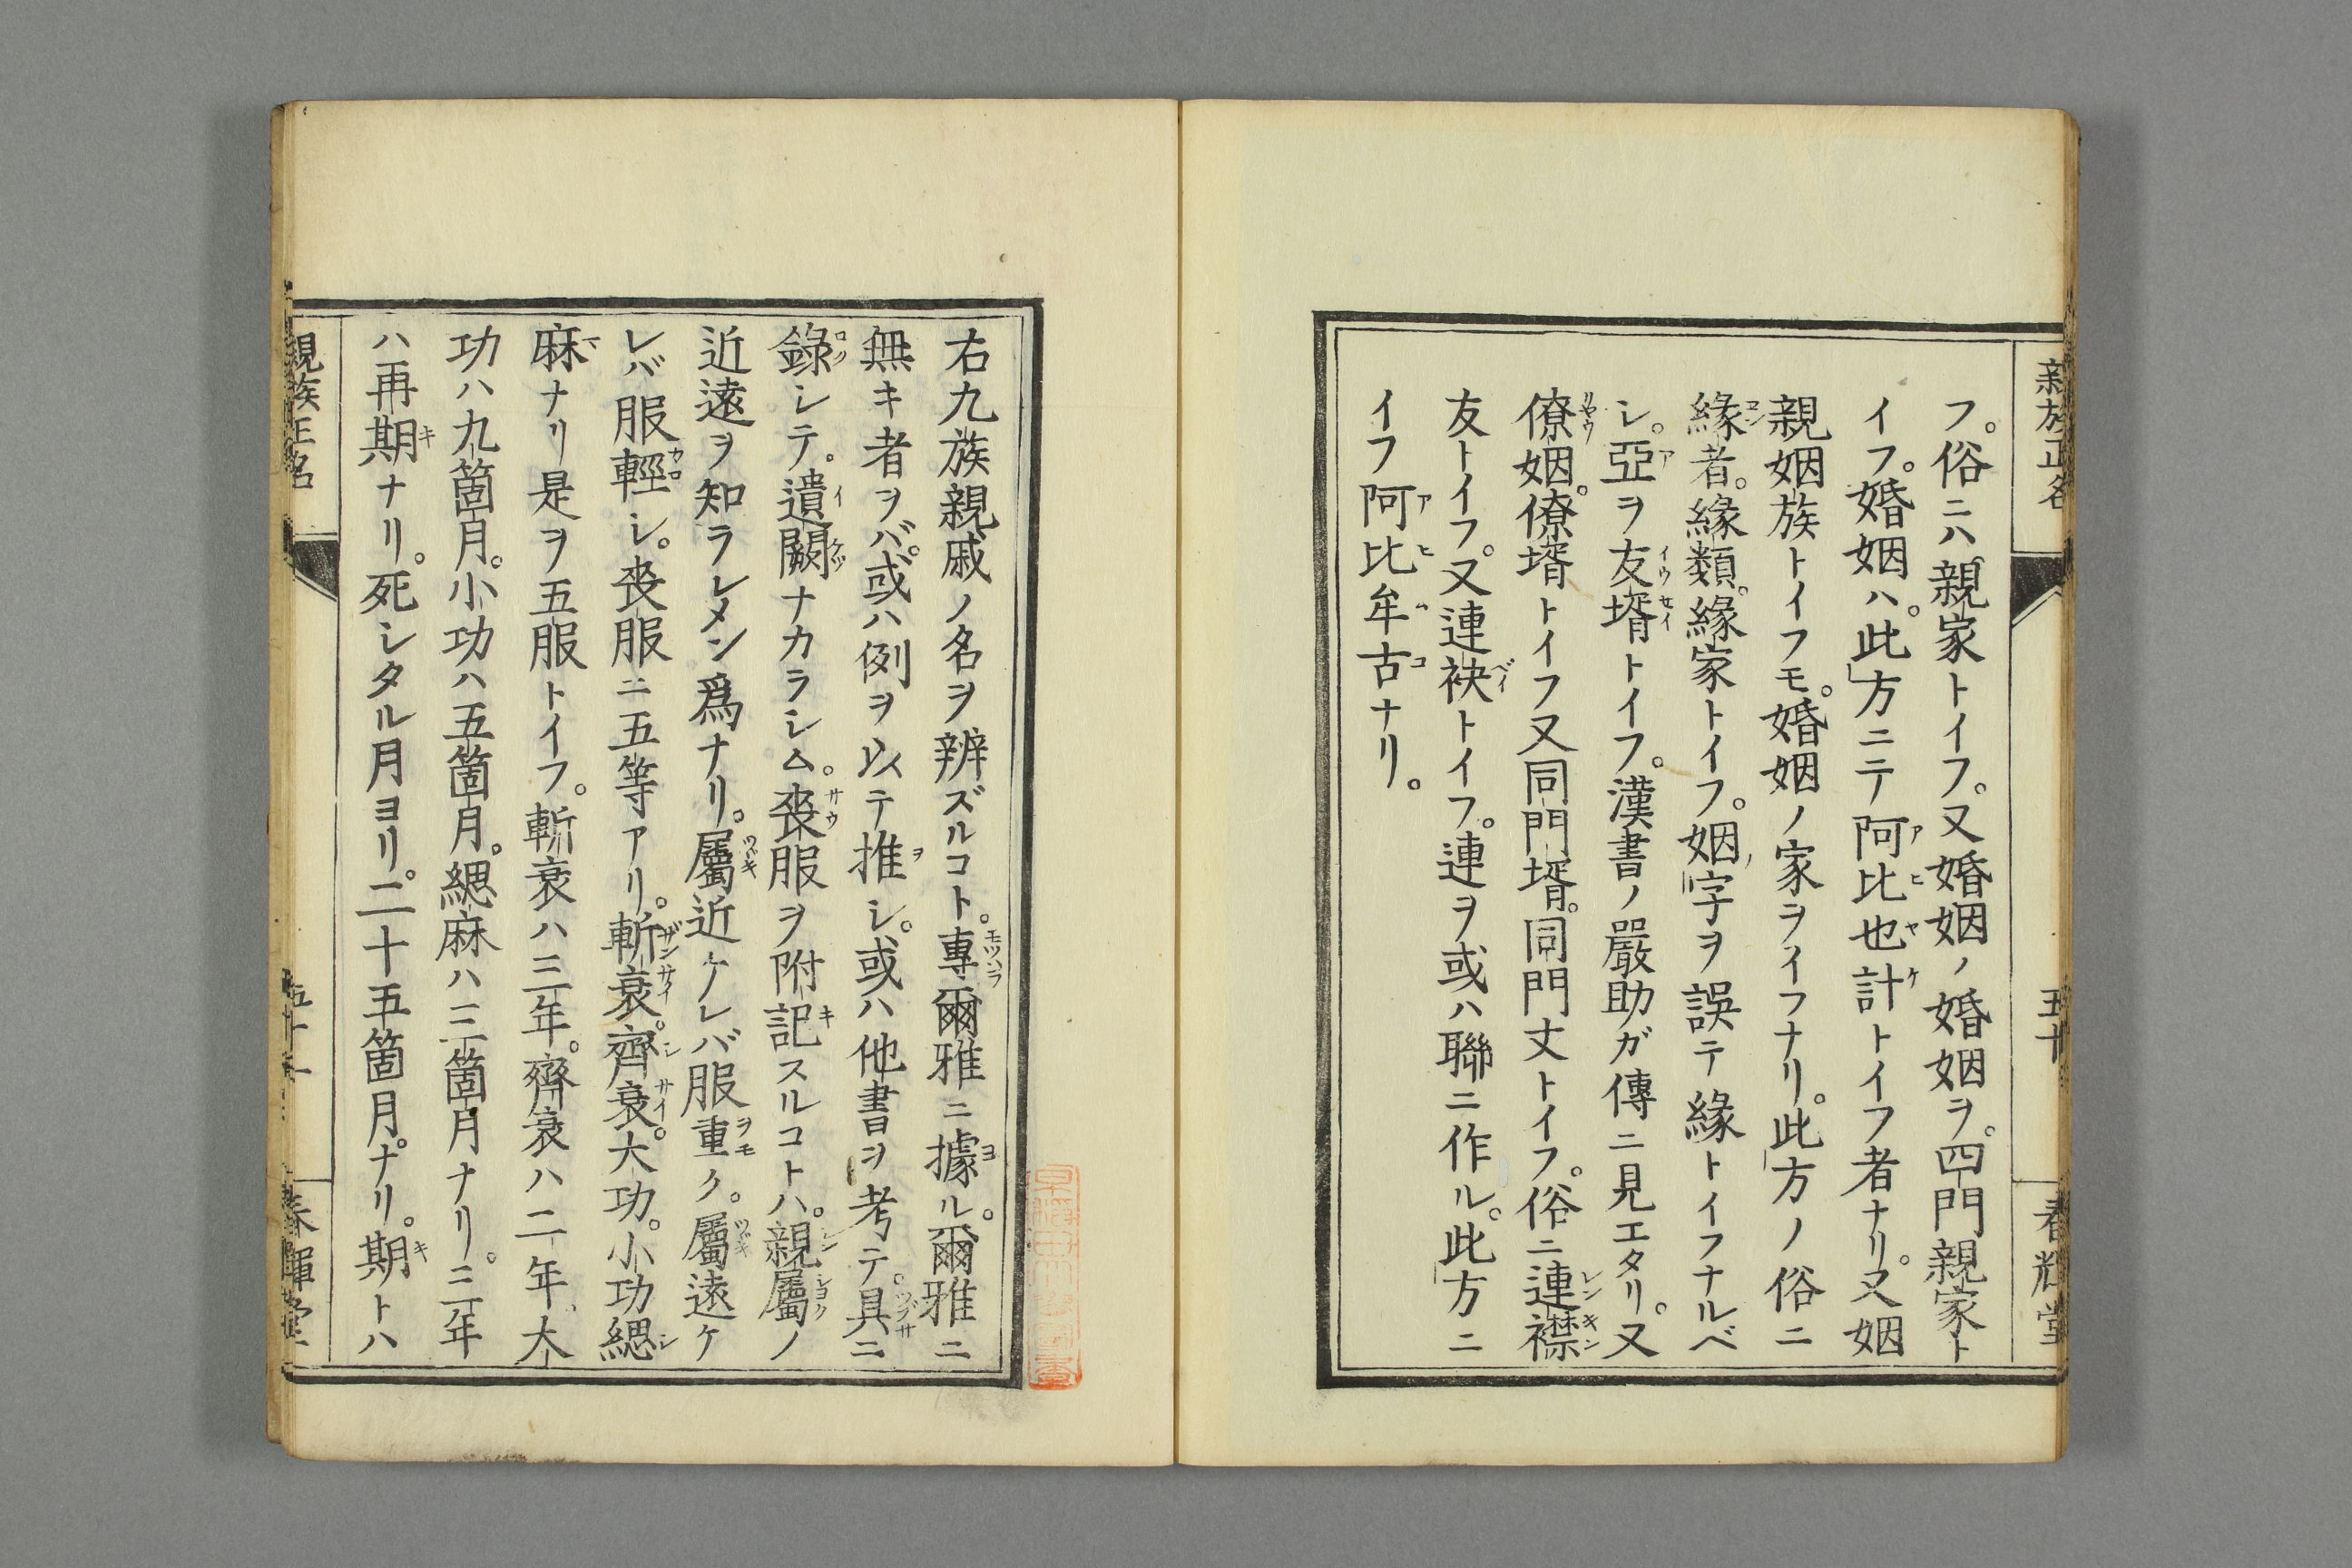 親族正名
五十
春輝堂
フ。俗ニハ親家トイフ。又婚姻ノ婚姻ヲ。四門親家ト
イフ。婚姻ハ。此方ニテ阿比也計トイフ者ナリ。又姻
親姻族トイフモ。婚姻ノ家ヲイフナリ。此方ノ俗ニ
緣者。緣類。緣家トイフ。姻字ヲ誤テ緣トイフナルベ
シ。亞ヲ友壻トイフ。漢書ノ嚴助ガ傳ニ見エタリ。又
僚姻。僚壻トイフ又同門壻。同門丈トイフ。俗ニ連襟
友トイフ。又連袂トイフ。連ヲ或ハ聯ニ作ル。此方ニ
イフ阿比牟古ナリ。
右九族親戚ノ名ヲ辨ズルコト。專爾雅ニ據ル。爾雅ニ
無キ者ヲバ。或ハ例ヲ以テ推シ。或ハ他書ヲ考テ。具ニ
錄シテ。遺闕ナカラシム。喪服ヲ附記スルコトハ。親屬ノ
近遠ヲ知ラレメン爲ナリ。屬近ケレバ服重ク。屬遠ケ
レバ服輕シ。喪服ニ五等アリ。斬衰。齊衰。大功。小功緦
麻ナリ是ヲ五服トイフ。斬衰ハ三年。齊衰ハ二年、大
功ハ九箇月。小功ハ五箇月。緦麻ハ三箇月ナリ。三年
ハ再期ナリ。死シタル月ヨリ。二十五箇月。ナリ。期トハ
親族正名
五十一
春輝堂